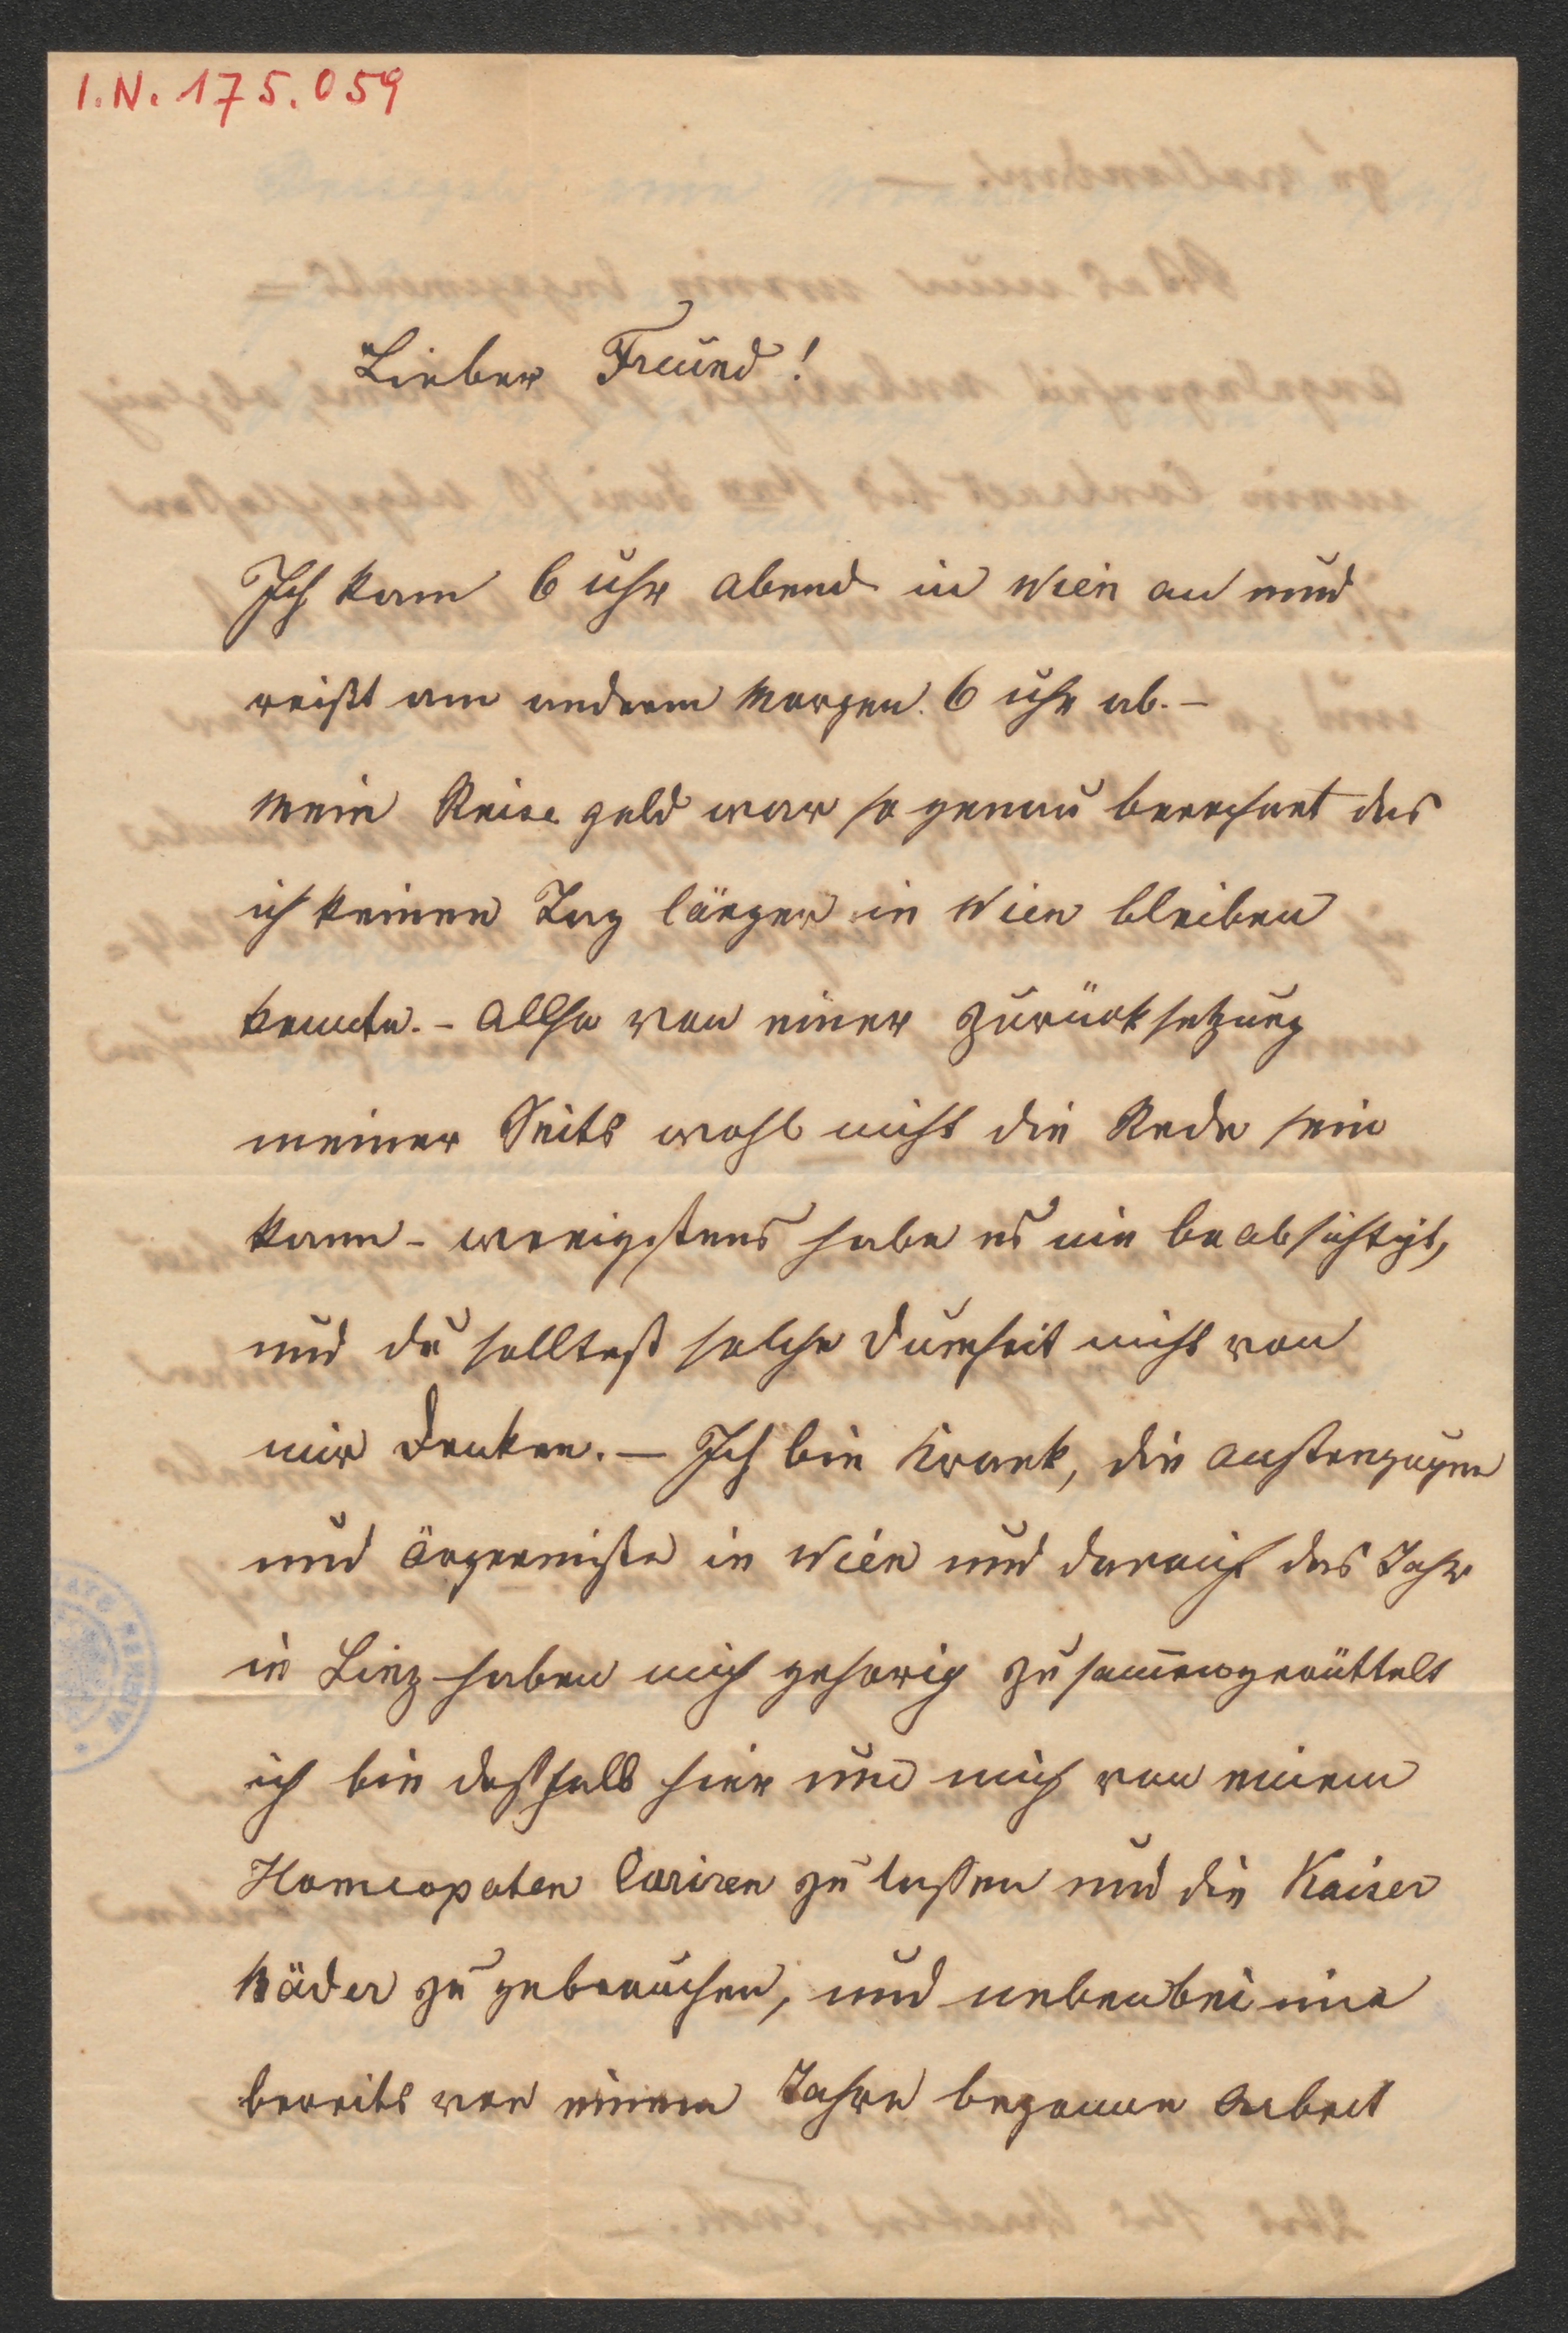 I.N. 175.059
Lieber Freund!
Ich kam 6 uhr abend in Wien an und
reißt am andern Morgen. 6 uhr ab. –
Mein Reise geld war so genau berechnet das
ich keinen Tag länger in Wien bleiben
konnte. – Allso von einer Zurücksetzung
meiner Seits wohl nicht die Rede sein
kann – wenigstens habe es nie beabsichtigt,
und du solltest solche Dumheit nicht von
mir denken. – Ich bin Krank, die Anstrengugen
und Ärgerniße in Wien und darauf das Jahr
in Linz haben mich gehorig zusam̅engerüttelt
ich bin deßhalb hier um mich von einem
Homeopaten Cariren zu laßen und die Kaiser
Bäder zu gebrauchen, und nebenbei eine
bereits vor einem Jahre begonne Arbeit